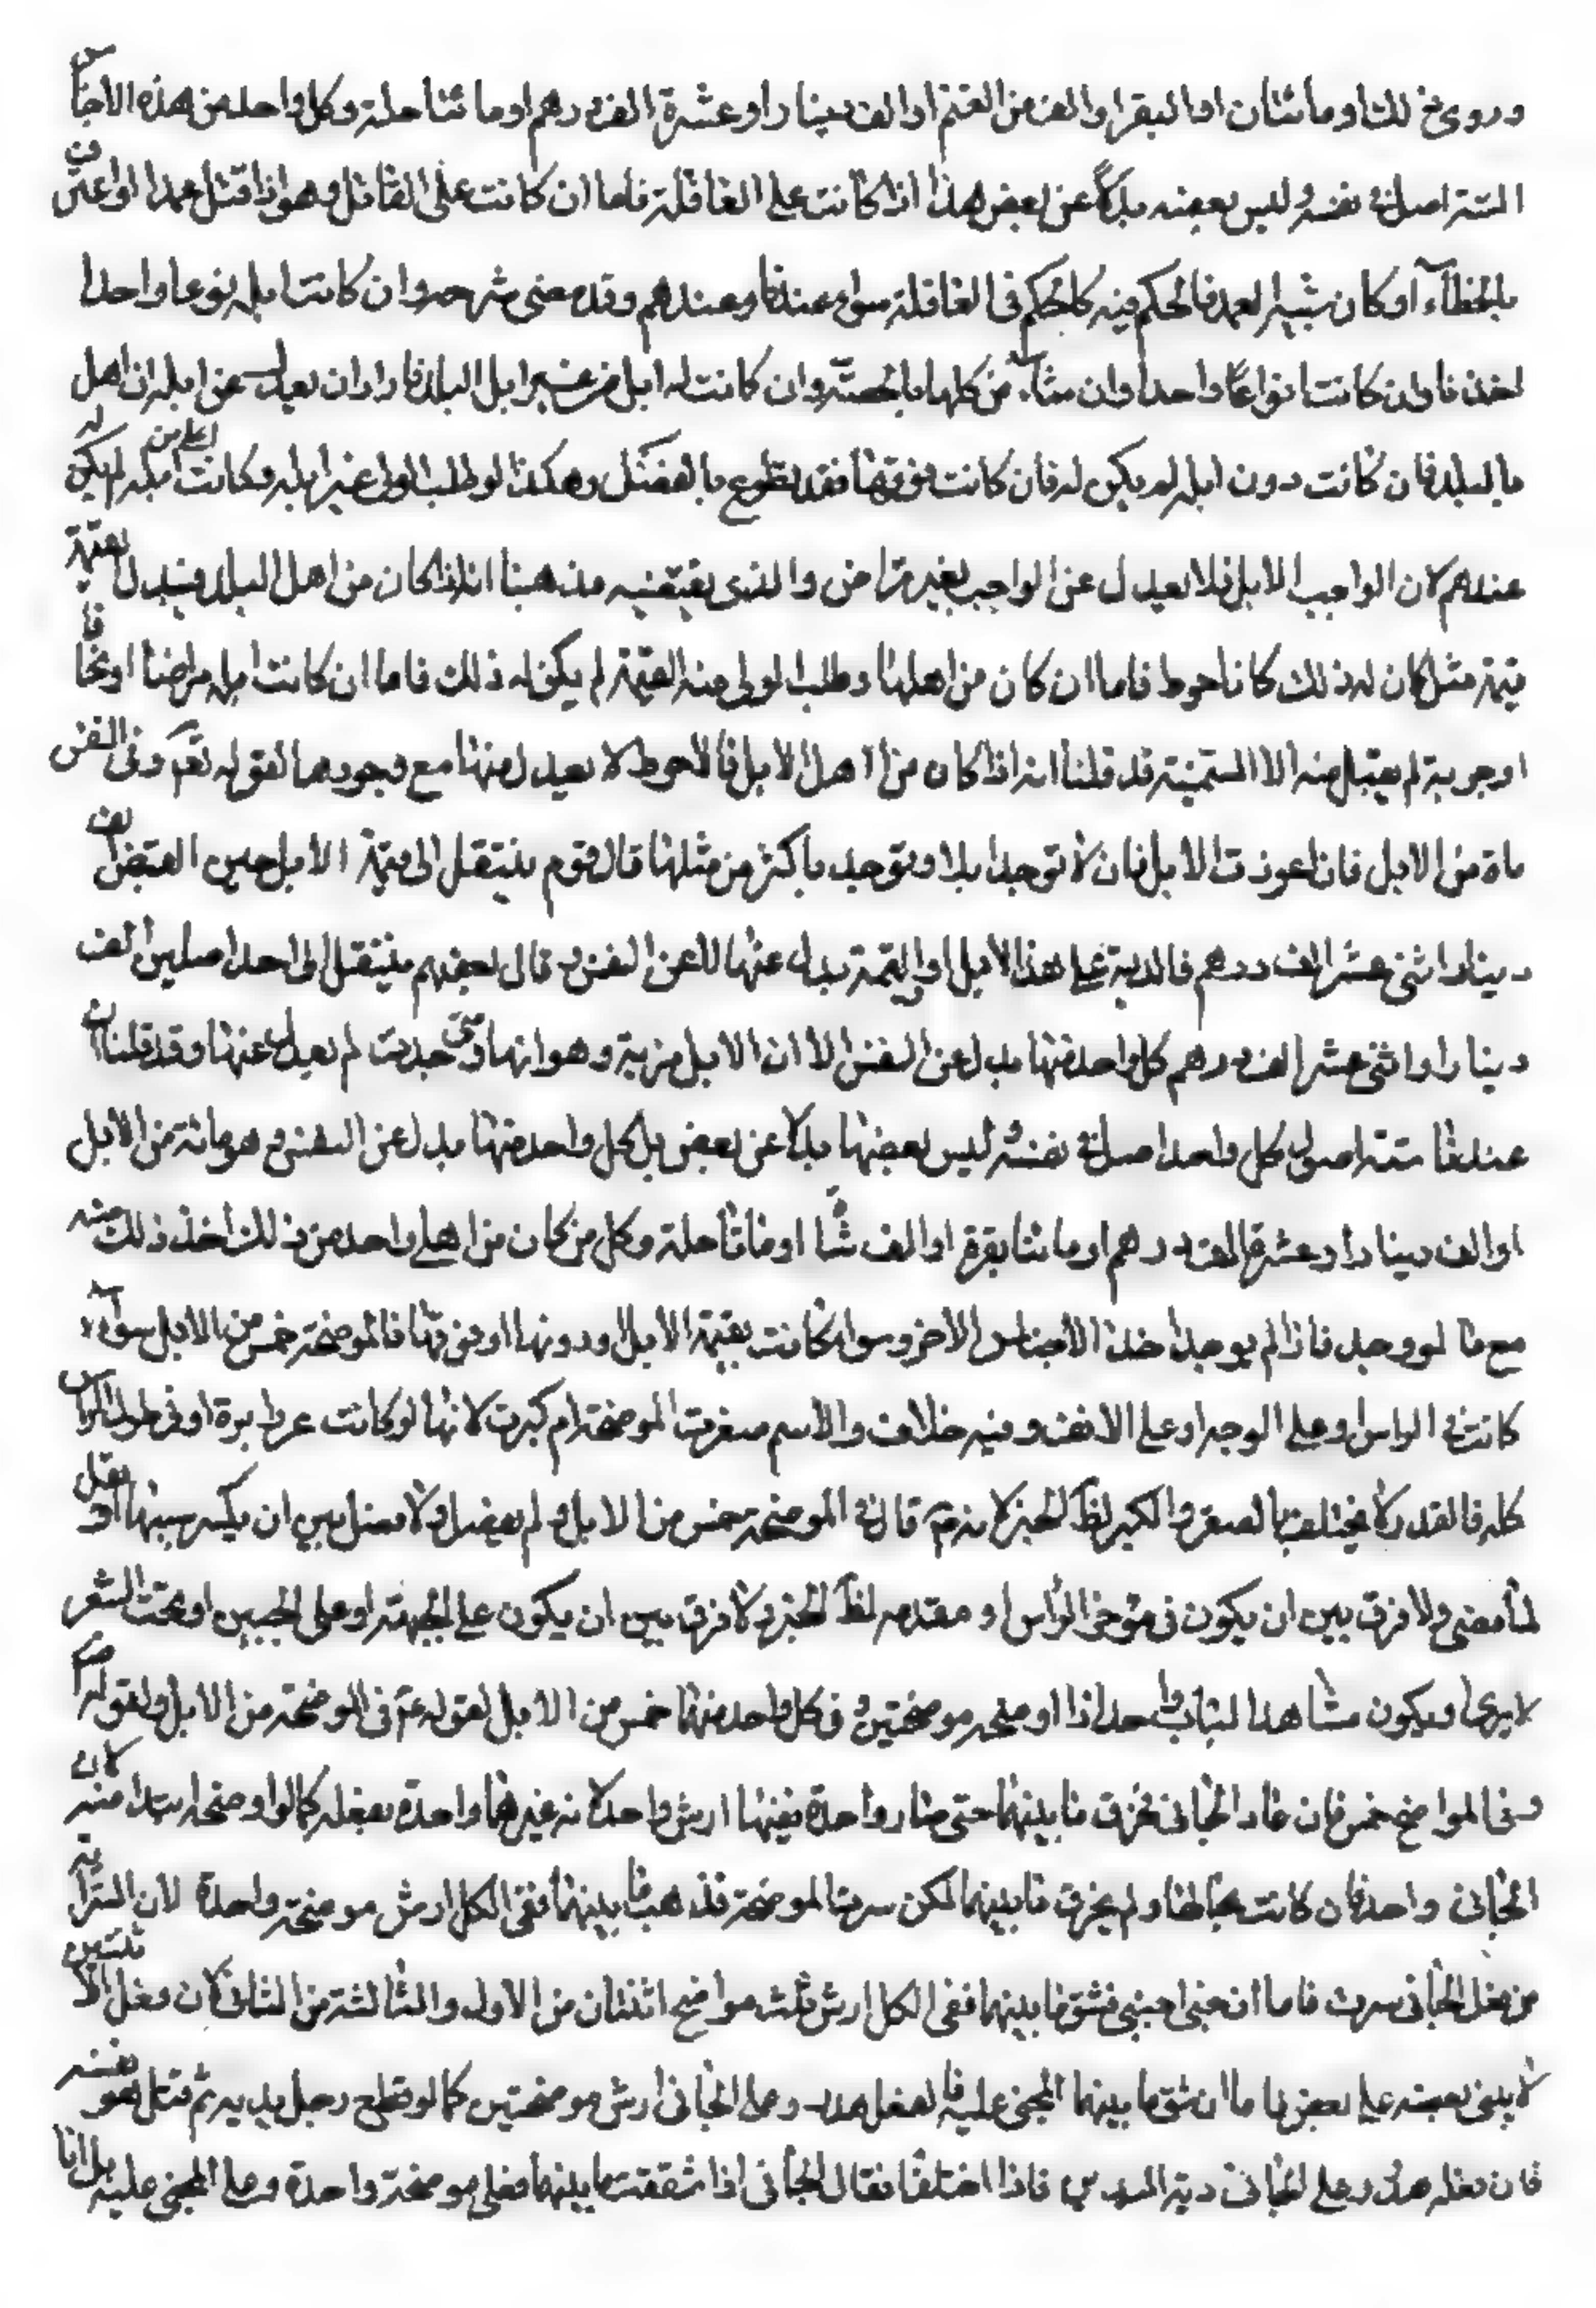 وروى ذلك او مائتان او البقر او الف من الغنم او الف دينار او عشرة الف درهم او مائتا حلة وكل واحد من هذه الاجناس
الستة اصل في نفسه وليس بعضه بدلا عن بعض هذا اذا كانت على العاقلة فاما ان كانت على القاتل وهو اذا قتل عمدا او اعترف
بالخطاء او كان شبيه العمد فالحكم فيه كالحكم في العاقلة سواء عندنا وعندهم وقد مضى شرحه وان كانت ابله نوعا واحدا
اخذنا وان كانت انواعا واحدا وان شاء من كلها بالحصة وان كانت له ابل من غير ابل البلد فاراد ان يعدل عن ابله ان اهل
بالبلد فان كانت دون ابله لم يكن له فان كانت فوقها فقد تطوع بالفضل وهكذا لو طلب الولى غير ابله وكانت اعلى من ابله لم يكن له
عندهم لان الواجب الابل فلا يعدل عن الواجب بغير تراض والذى يقتضيه مذهبنا انه اذا كان من اهل البلد وبذل القيمة
قيمة مثل كان له ذلك كان احوط فاما ان كان من اهلها وطلب الولى منه القيمة لم يكن له ذلك فاما ان كانت ابله مراضا او نحافا
او جربة لم يقبل منه الا السمينة قد قلنا انه اذا كان من اهل الابل فالاحوط لا يعدل منها مع وجودها لقوله ع وفى النفس
ماة من الابل فان اعوزت الابل فان لا توجد ابلا او توجد باكثر من مثلها قال قوم ينتقل الى قيمة الابل حين القبض الف
دينار او اثنى عشر الف درهم فالدية على هذا الابل او القيمة بدل عنها لا عن النفس وقال بعضهم ينتقل الى احد اصلين الف
دينار او اثنى عشر الف درهم كل واحد منها بدل عن النفس الا ان الابل مزية وهو انها متى وجدت لم يعدل عنها وقد قلنا ان
عندنا ستة اصول كل واحد اصل في نفسه ليس بعضها بدلا عن بعض بل كل واحد منها بدل عن النفس وهو مائة من الابل
او الف دينار او عشرة الف درهم او مائتا بقرة او الف شاة او مائتا حلة وكل من كان من اهل واحد من ذلك اخذ ذلك منه
مع ما لو وجد فاذا لم يوجد اخذ الاجناس الاخر وسواء كانت بقيمة الابل او دونها او فوقها فالموضحة خمس من الابل سواء
كانت في الراس او على الوجه او على الانف وفيه خلاف والاسم صغرت الموضحة ام كبرت لانها لو كانت غرز ابرة او في طول الراس
كله فالقدر لا يختلف بالصغر والكبر لظ الخبر لانه ع قال في الموضحة خمس من الابل ولم يفصل ولا فصل بين ان يكسر سببها او يقل
لما مضى ولا فرق بين ان يكون في مؤخر الراس او مقدمه لظ الخبر ولا فرق بين ان يكون على الجبهة او على الجبين او تحت الشعر
لا يرى او يكون مشاهدا لباب واحد اذا اوضحه موضحتين وفي كل واحد منهما خمس من الابل لقوله ع في الموضحة من الابل ولقوله ع
وفى المواضح خمس فان عاد الجانى فخرق ما بينهما حتى صار واحدة ففيها ارش واحد لانه غيرهما واحدة بفعله كما لو اوضحه ابتداء منه لان
الجانى واحد فان كانت بحالها ولم يخرق ما بينهما لكن سرت الموضحة فذهب ما بينهما ففى الكل ارش موضحة واحدة لان السراية
من فعل الجانى سرت فاما ان جنى اجنبى فشق ما بينهما ففى الكل ارش ثلث مواضح اثنتان من الاول والثالثة من الثانى لان فعل الاثنين
لا يبنى بعضه على بعض فاما ان شق ما بينهما المجنى عليه فالفعل هدر وعلى الجانى ارش موضحتين كما لو قطع رجل يديه ثم قتل هو نفسه
فان فعله هدر وعلى الجانى دية اليدين فاذا اختلفا فقال الجانى اذا شققت ما بينهما فعلى موضحة واحدة وقال المجنى عليه بل انا